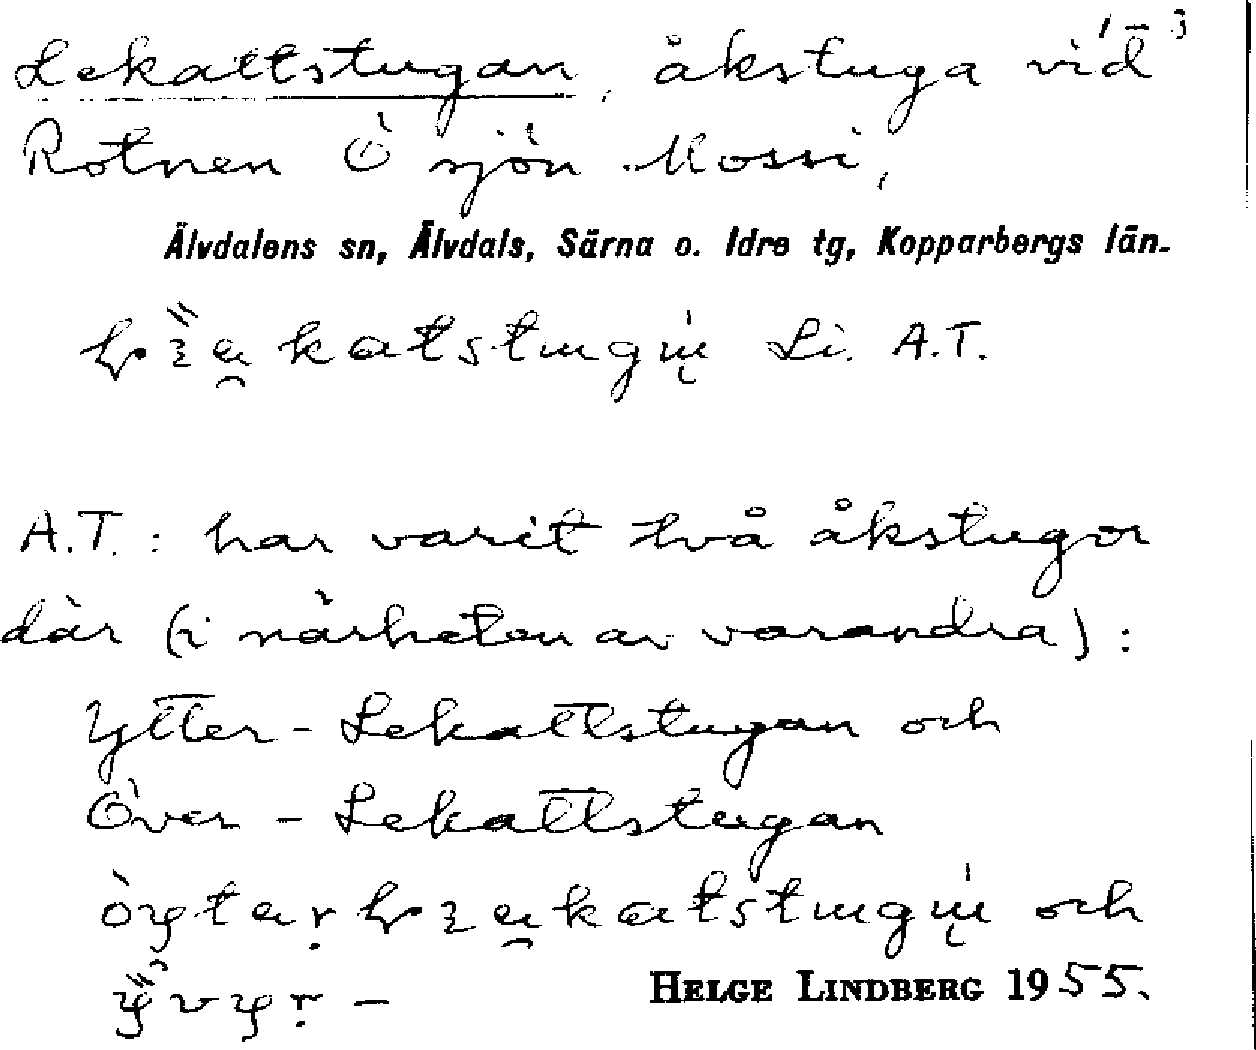 1-3
Lekattstugan, åkstuga vid
Rotnen Ö sjön Mossi,
Älvdalens sn, Älvdals, Särna o. Idre tg, Kopparbergs län.
Li. A.T.
A.T. : har varit två åkstugor
där (i närheten av varandra) :
Ytter-Lekattstugan och
Över-Lekattstugan
och
HELGE LINDBERG 1955.